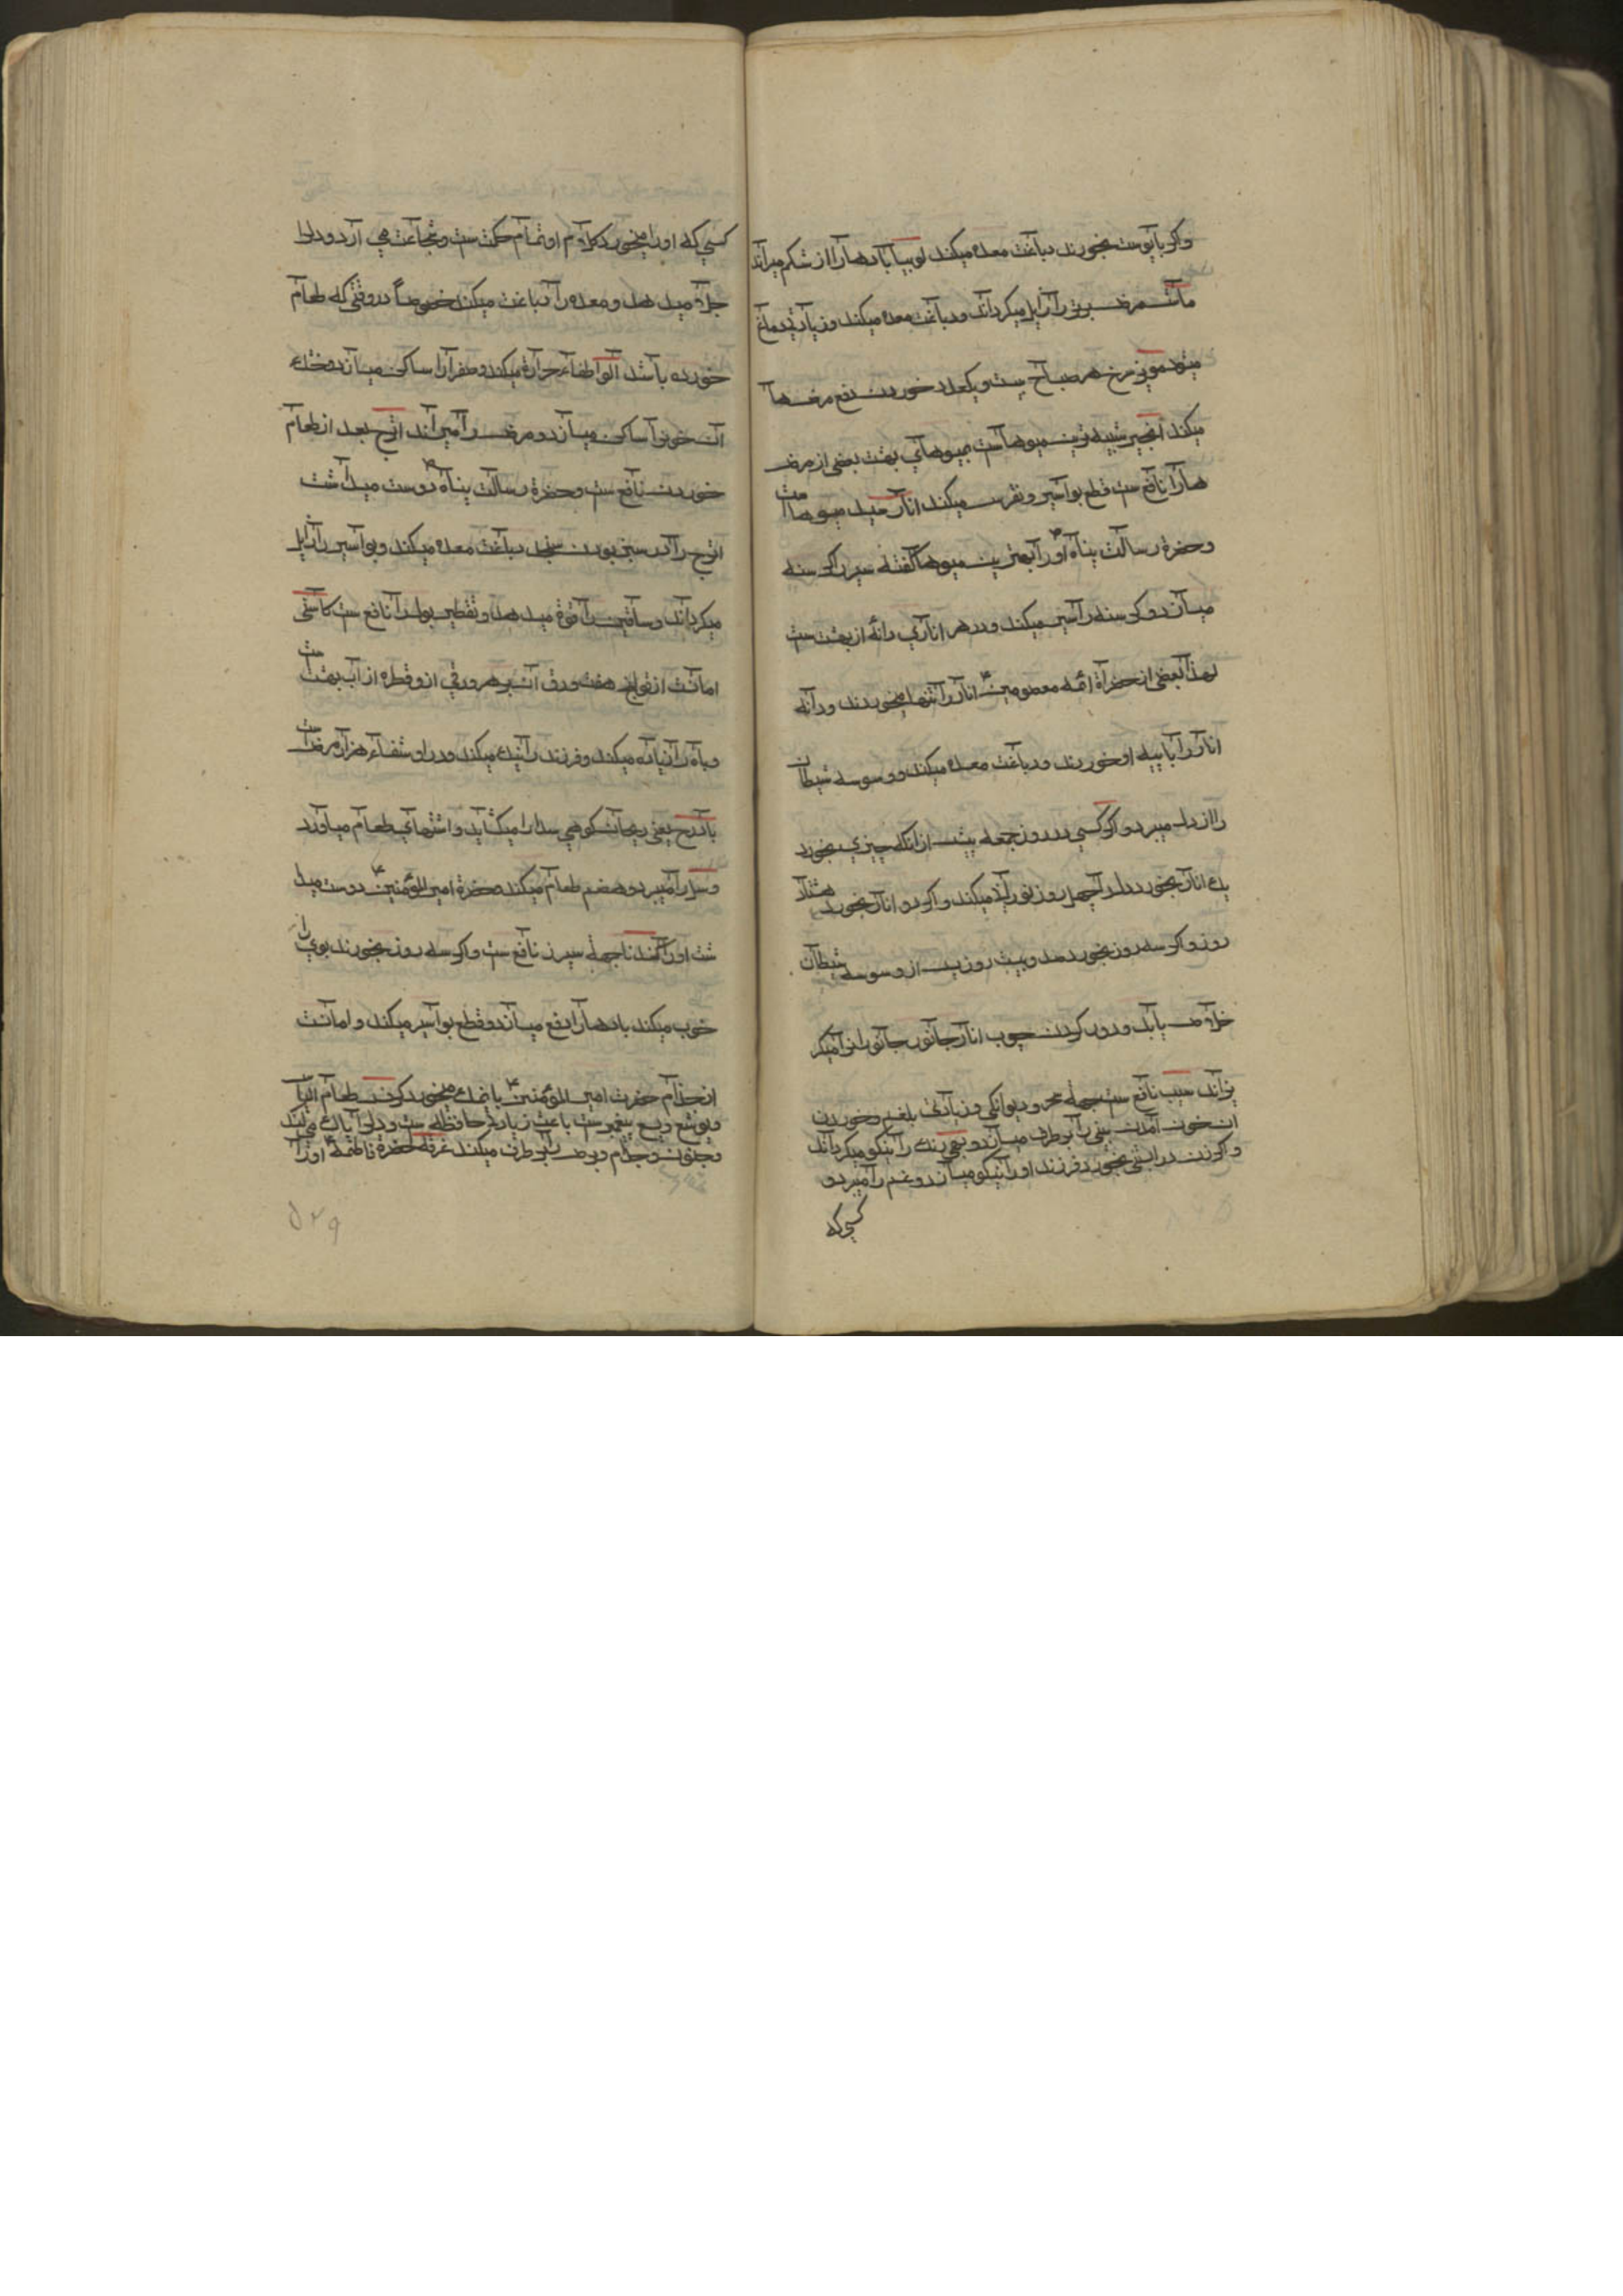 واکر بایوست بخورند دباغت معده میکند لوبیا بادهارا از شکم میراند
ماش مرض برص را زایل میکرداند ودباغت معده میکند وزیادتی دماغ
میشود مویز سرخ هر صباح بیست ویکعدد خوردن دفع مرضها
میکند انجیر شبیه ترین میوهاست بمیوهای بهشت بعضی از مرض
هارا نافع ست قطع بواسیر ونقرس میکند انار سید میوهاست
وحضرة رسالت پناه اورا بهترین میوها کفته سیر را کرسنه
میسازد وکرسنه را سیر میکند ودر هر اناری دانهٔ از بهشت ست
لهذا بعضی از حضراة ائمه معصومین انار را تنها میخوردند ودانه
انار را با پیه او خورند ودباغت معده میکند ووسوسه شیطان
را از دل میبرد واکر کسی در روز جمعه پیش از انکه چیزی بخورد
یک انار بخورد دلرا چهل روز نورانی میکند واکر دو انار بخورد هشتاد
روز واکر سه روز بخورد صد وبیست روز پس از وسوسه شیطان
خلاص یابد ودور کردن چوب انار جانور جانورانرا میکر
یزاند سیب نافع ست جمله سحر ودیوانکی وزیادتی بلغم وخوردن
ان خون آمدن بینی را برطرف میسازد وبهی رنک را نیکو میکرداند
واکر زن در ابستنی بخورد فرزند اورا نیکو میسازد وغم را میبرد و
کسی که
کسی که اورا میخورد کلام او تمام حکمت ست وشجاعت می آرد ودلرا
جلا میدهد ومعده را دباغت میکند خصوصاً در وقتی که طعام
خورده باشد آلو اطفاء حرارة میکند وصفرا را ساکن میسازد وخشک
ان خونرا ساکن میسازد ومرض را میراند اترج بعد از طعام
خوردن نافع ست وحضرة رسالت پناه دوست میداشت
اترج را در سبز بودن سنجد دباغت معده میکند وبواسیر را زایل
میکرداند وساقین را قوة میدهد وتقطیر بول را نافع ست کاسنی
امانست از قولنج هفت ورق آن بر هر ورقی ازو قطره از آب بهشت است
وباه را زیاده میکند وفرزند را نیک میکند ودر او شفاء هزار مرض است
بادرج یعنی ریحان کوهی سدارا میکشاید واشتهای طعام میاورد
وسل را میبرد وهضم طعام میکند وحضرة امیر المؤمنین دوست میدا
شت اورا کندنا جمله سپرز نافع ست واکر سه روز بخورند بوی را
خوب میکند بادهارا دفع میسازد وقطع بواسیر میکند وامانست
از جذام حضرت امیر المؤمنین با نمک میخورد کرفس طعام الیاس
ویوشع ویسع پیغمبرست باعث زیادة حافظه ست ودلرا پاک میکند
وجنون وجذام وبرص را برطرف میکند خرفه حضرة فاطمه اورا
۵۲۹